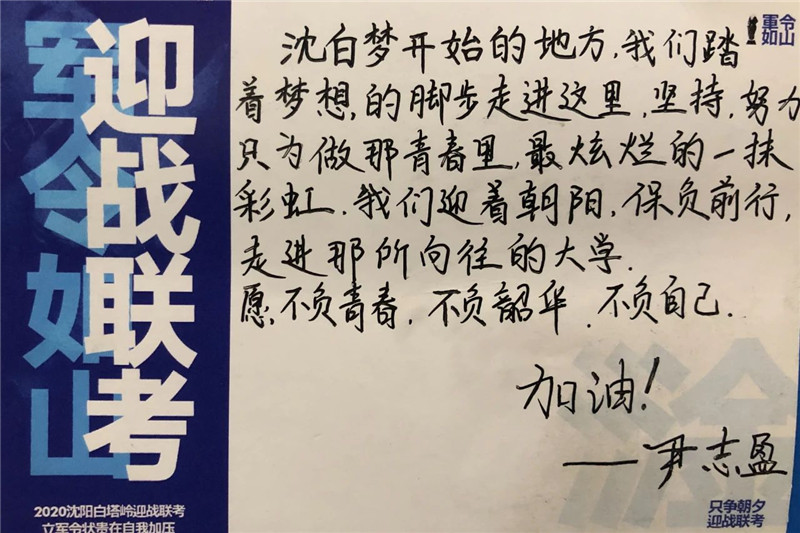 军令如山
迎战联考
2020沈阳白塔岭迎战联考
立军令状贵在自我加压
軍令
如山
沈白梦开始的地方,我们踏
着梦想,的脚步走进这里,坚持,努力
只为做那青春里,最炫烂的一抹
彩虹.我们迎着朝阳,保负前行,
走进那所向往的大学.
愿,不负青春,不负韶华.不负自己.
加油!
——尹志盈
只争朝夕
迎战联考